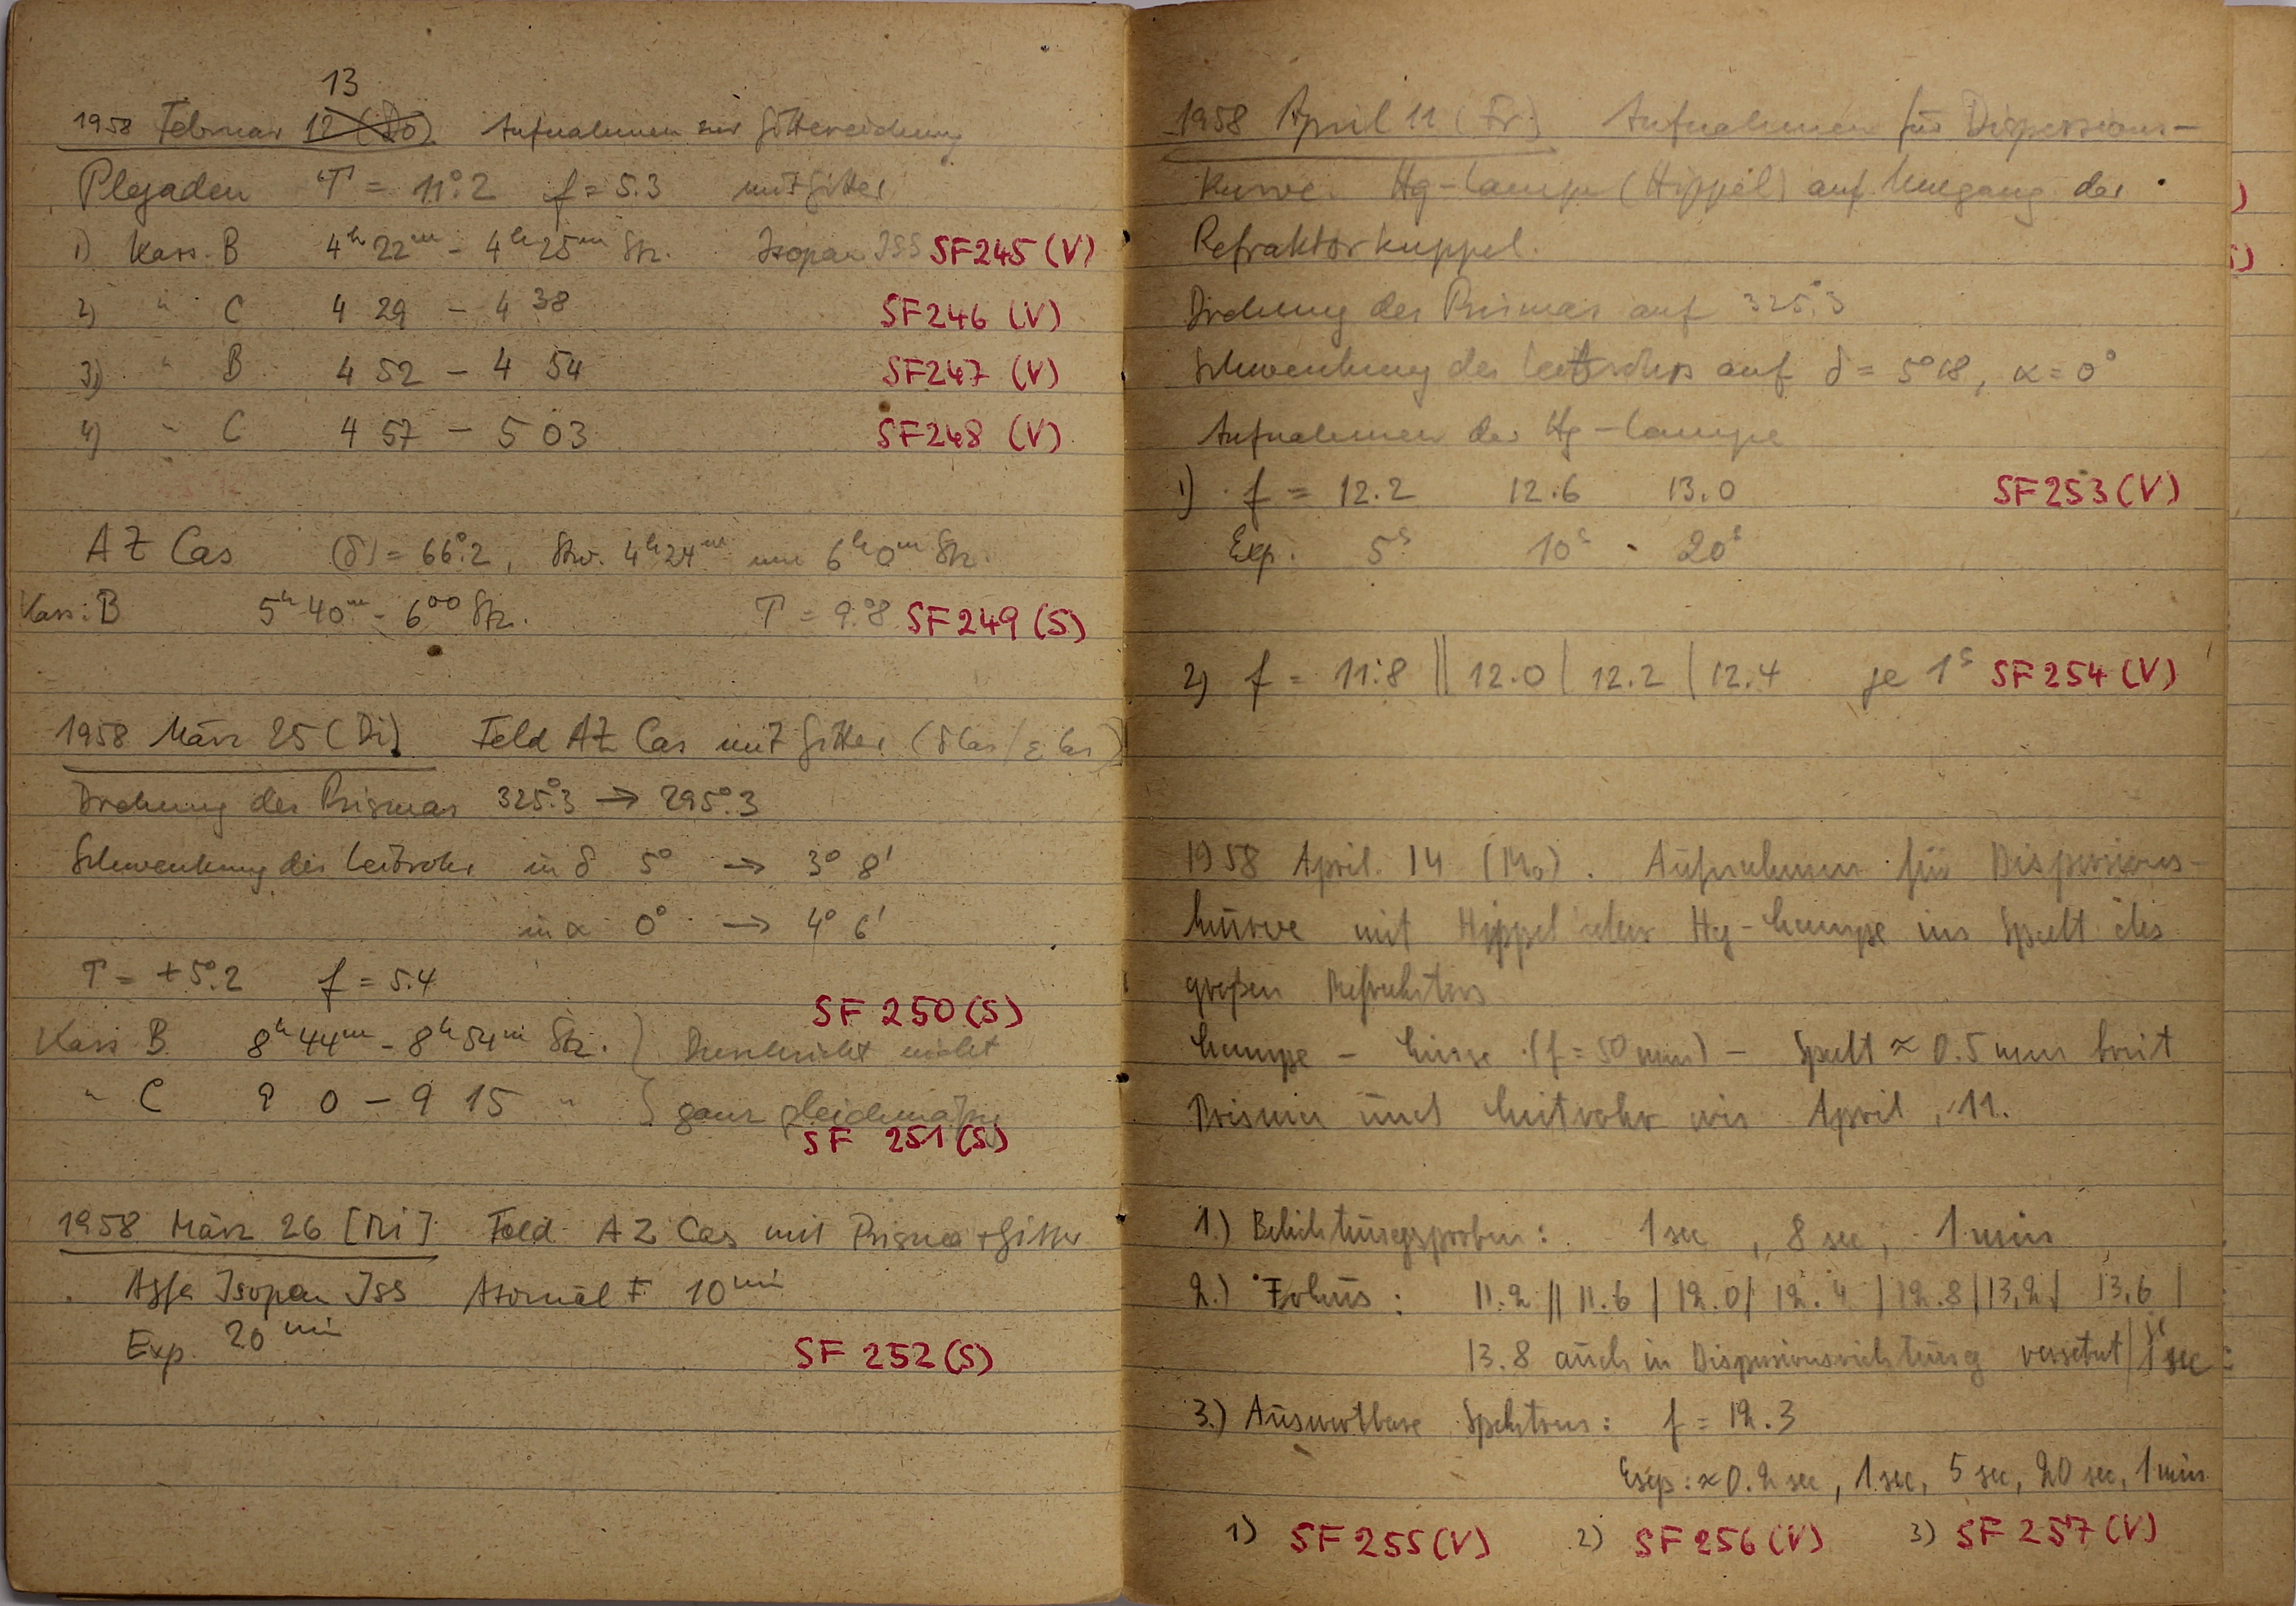 13
1958 Februar 12 (Do) Aufnahmen zur Gittereichung
Plejaden T = 11°.2 f = 5.3 mit Gitter
1) Kass. B 4h 22m - 4h 25m Stz. Isopan ISS SF245 (V)
2) " C 4 29 - 4 38 SF246 (V)
3) " B 4 52 - 4 54 SF247 (V)
4) " C 4 57 - 5 03 SF248 (V)
AZ Cas (δ) = 66°.2, Stw. 4h24m um 6h0m Stz.
Kass. B 5h 40m - 6 00 Stz. T = 9°.8 SF249 (S)
1958 März 25 (Di) Feld AZ Cas mit Gitter (δ Cas / ε Cas)
Drehung des Prismas 325°.3 → 295°.3
Schwenkung des Leitrohrs in δ 5° → 3° 8'
in α 0° → 4° 6'
T = +5°.2 f = 5.4
SF 250 (S)
Kass. B 8h44m - 8h54m Stz. } Durchsicht nicht
" C 9 0 - 9 15 " } ganz gleichmäßig
SF 251 (S)
1958 März 26 [Mi] Feld AZ Cas mit Prisma + Gitter
Agfa Isopan ISS Atomal F 10 min
Exp. 20 min
SF 252 (S)
1958 April 11 (Fr.) Aufnahmen für Dispersions-
kurve. Hg-Lampe (Hippel) auf Umgang der
Refraktorkuppel.
Drehung des Prismas auf 325°.3
Schwenkung des Leitrohrs auf δ = 5°18, α = 0°
Aufnahmen der Hg-Lampe
1) f = 12.2 12.6 13.0 SF253 (V)
Exp. 5s 10s 20s
2) f = 11.8 || 12.0 | 12.2 | 12.4 je 1s SF254 (V)
1958 April 14 (Mo). Aufnahmen für Dispersions-
kurve mit Hippel'scher Hg-Lampe im Spalt des
großen Refraktors
Lampe - Linse (f = 50 mm) - Spalt ≈ 0.5 mm breit
Prisma und Leitrohr wie April 11.
1.) Belichtungsproben: 1 sec, 8 sec, 1 min
2.) Fokus: 11.2 || 11.6 | 12.0 | 12.4 | 12.8 | 13.2 | 13.6 |
13.8 auch in Dispersionsrichtung versetzt | je 1 sec
3.) Auswertbare Spektren: f = 12.3
Exp: ≈ 0.2 sec, 1 sec, 5 sec, 20 sec, 1 min
1) SF255 (V) 2) SF256 (V) 3) SF257 (V)